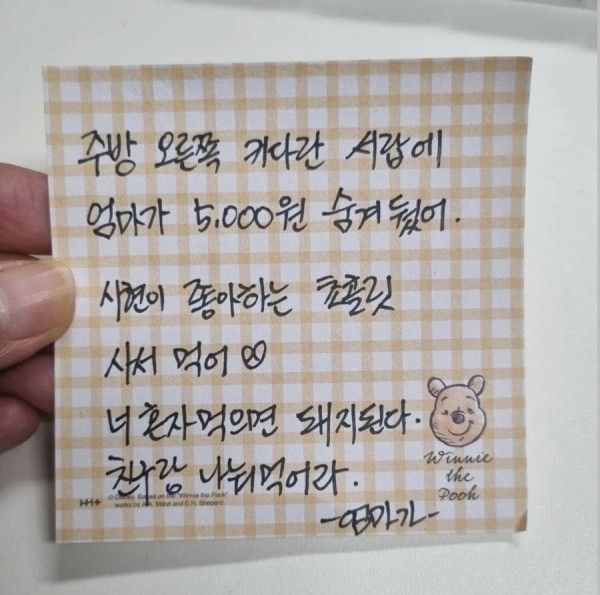 주방 오른쪽 커다란 서랍에
엄마가 5,000원 숨겨 뒀어.
시현이 좋아하는 쵸콜릿
사서 먹어♡
너 혼자먹으면 돼지된다.
친구랑 나눠먹어라.
-엄마가-
Winnie
the
Pooh
© Disney. Based on the "Winnie the Pooh"
works by A.A. Milne and E.H. Shepard.